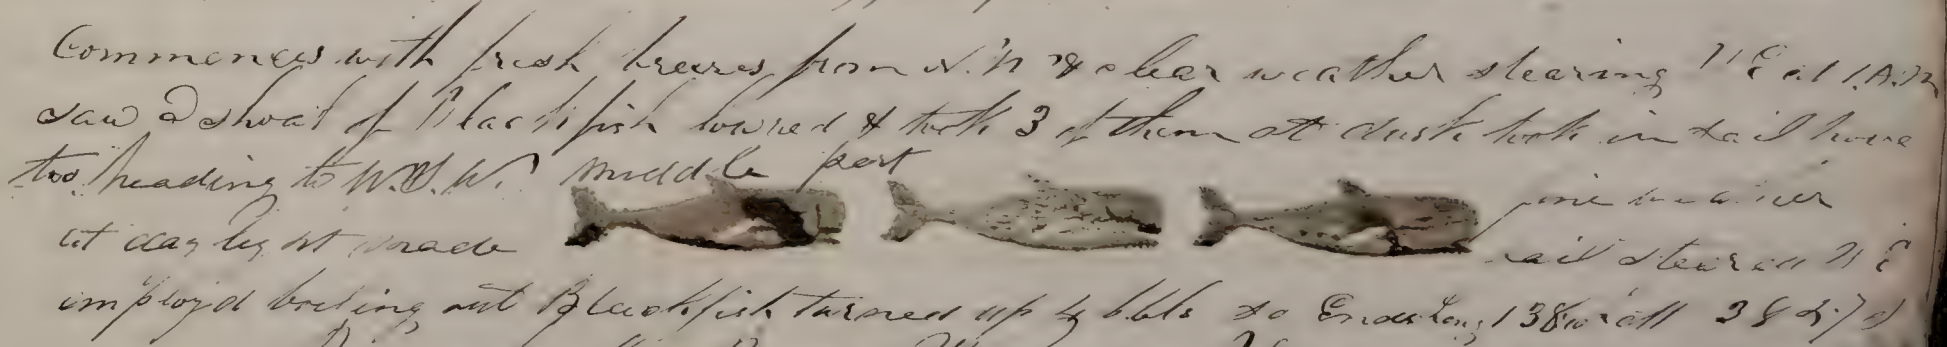 Commences with fresh breezes from N.W & clear weather stearing N E at 1. A.M
saw a shoal of Blackfish lowred & took 3 of them at dusk took in sail hove
too heading to W.S.W. middle part fine weather
at daylight made sail steared N E
imployd boiling out Blackfish turned up 4 bbls so Ends Long 138 Lat 38